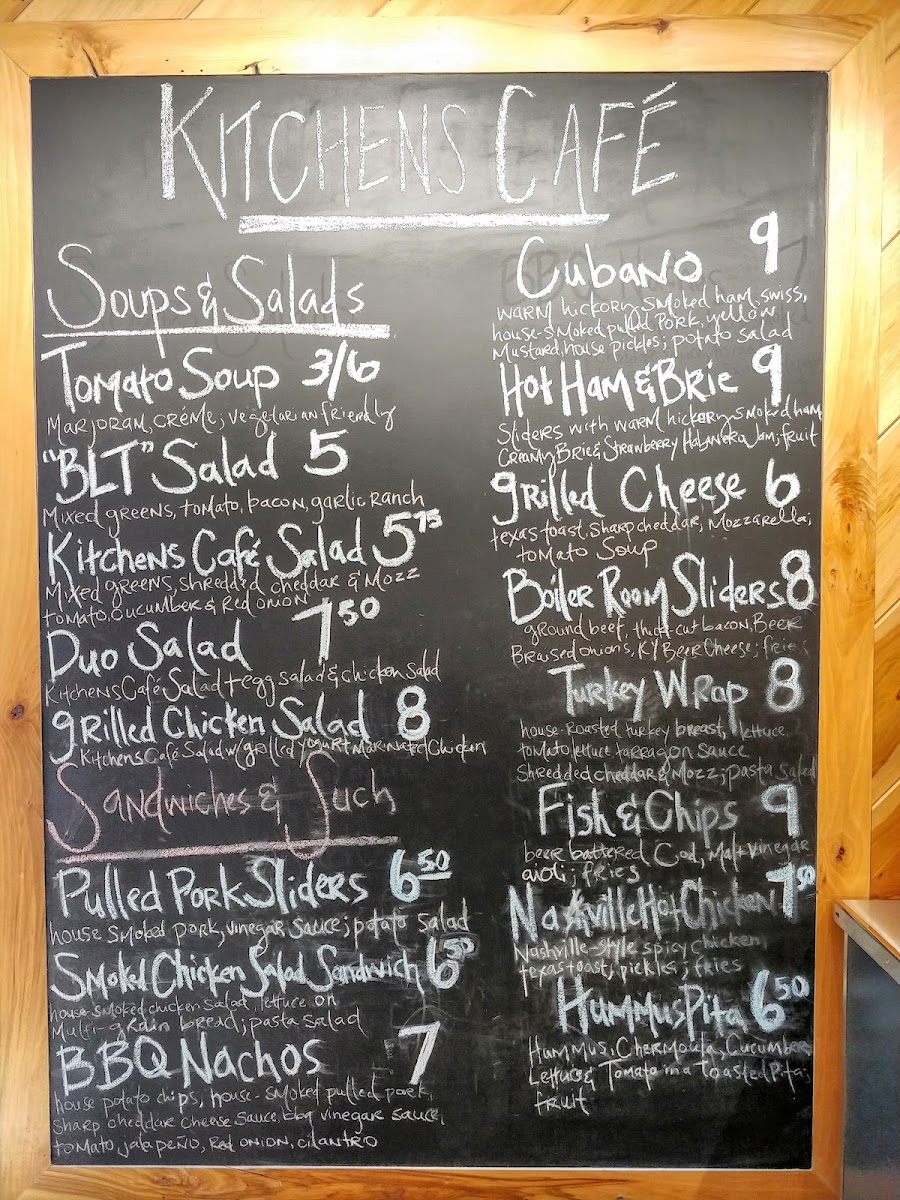 KITCHENS CAFÉ
Soups & Salads
Tomato Soup 3/6
Marjoram, Créme; vegetarian friendly
"BLT" Salad 5
Mixed greens, tomato, bacon, garlic ranch
Kitchens Café Salad 5 75
Mixed greens, shredded cheddar & Mozz
tomato, cucumber & Red onion
Duo Salad 7 50
Kitchens Café Salad + egg salad & chicken Salad
grilled Chicken Salad 8
Kitchens Café Salad w/ grilled yogurt Marinated Chicken
Sandwiches & Such
Pulled Pork Sliders 6 50
house smoked pork, vinegar sauce; potato salad
Smoked Chicken Salad Sandwich 6 50
house-smoked chicken salad, lettuce on
Multi-grain bread; pasta salad
BBQ Nachos 7
house potato chips, house-smoked pulled pork,
sharp cheddar cheese sauce, bbq vinegar sauce,
tomato, jalapeño, red onion, cilantro
Cubano 9
warm hickory smoked ham, swiss,
house-smoked pulled pork, yellow
Mustard, house pickles; potato salad
Hot Ham & Brie 9
Sliders with warm hickory smoked ham
Creamy Brie & Strawberry Habanera Jam; fruit
grilled Cheese 6
texas toast, sharp cheddar, Mozzarella;
tomato Soup
Boiler Room Sliders 8
ground beef, thick-cut bacon, Beer
Braised onions, KY Beer Cheese; fries
Turkey Wrap 8
house-roasted turkey breast, lettuce
tomato lettuce tarragon sauce
Shredded cheddar & Mozz; pasta salad
Fish & Chips 9
beer battered Cod, Malt vinegar
aioli; fries
Nashville Hot Chicken 7 50
Nashville-style spicy chicken,
texas toast, pickles; fries
Hummus Pita 6 50
Hummus, Chermoula, Cucumber
Lettuce & Tomato in a Toasted Pita;
fruit